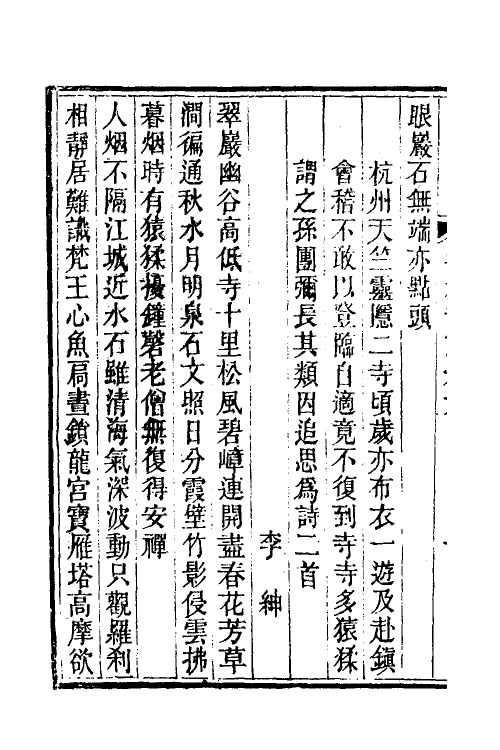 眼巖石無端亦點頭
杭州天竺靈隱二寺頃歲亦布衣一遊及赴鎮
會稽不敢以登臨自適竟不復到寺寺多猿猱
謂之孫團彌長其類因追思爲詩二首
李紳
翠巖幽谷高低寺十里松風碧嶂連開盡春花芳草
澗徧通秋水月明泉石文照日分霞壁竹影侵雲拂
暮烟時有猿猱擾鐘磬老僧無復得安禪
人烟不隔江城近水石雖清海氣深波動只觀羅刹
相靜居難識梵王心魚扃晝鎖龍宮寶雁塔高摩欲